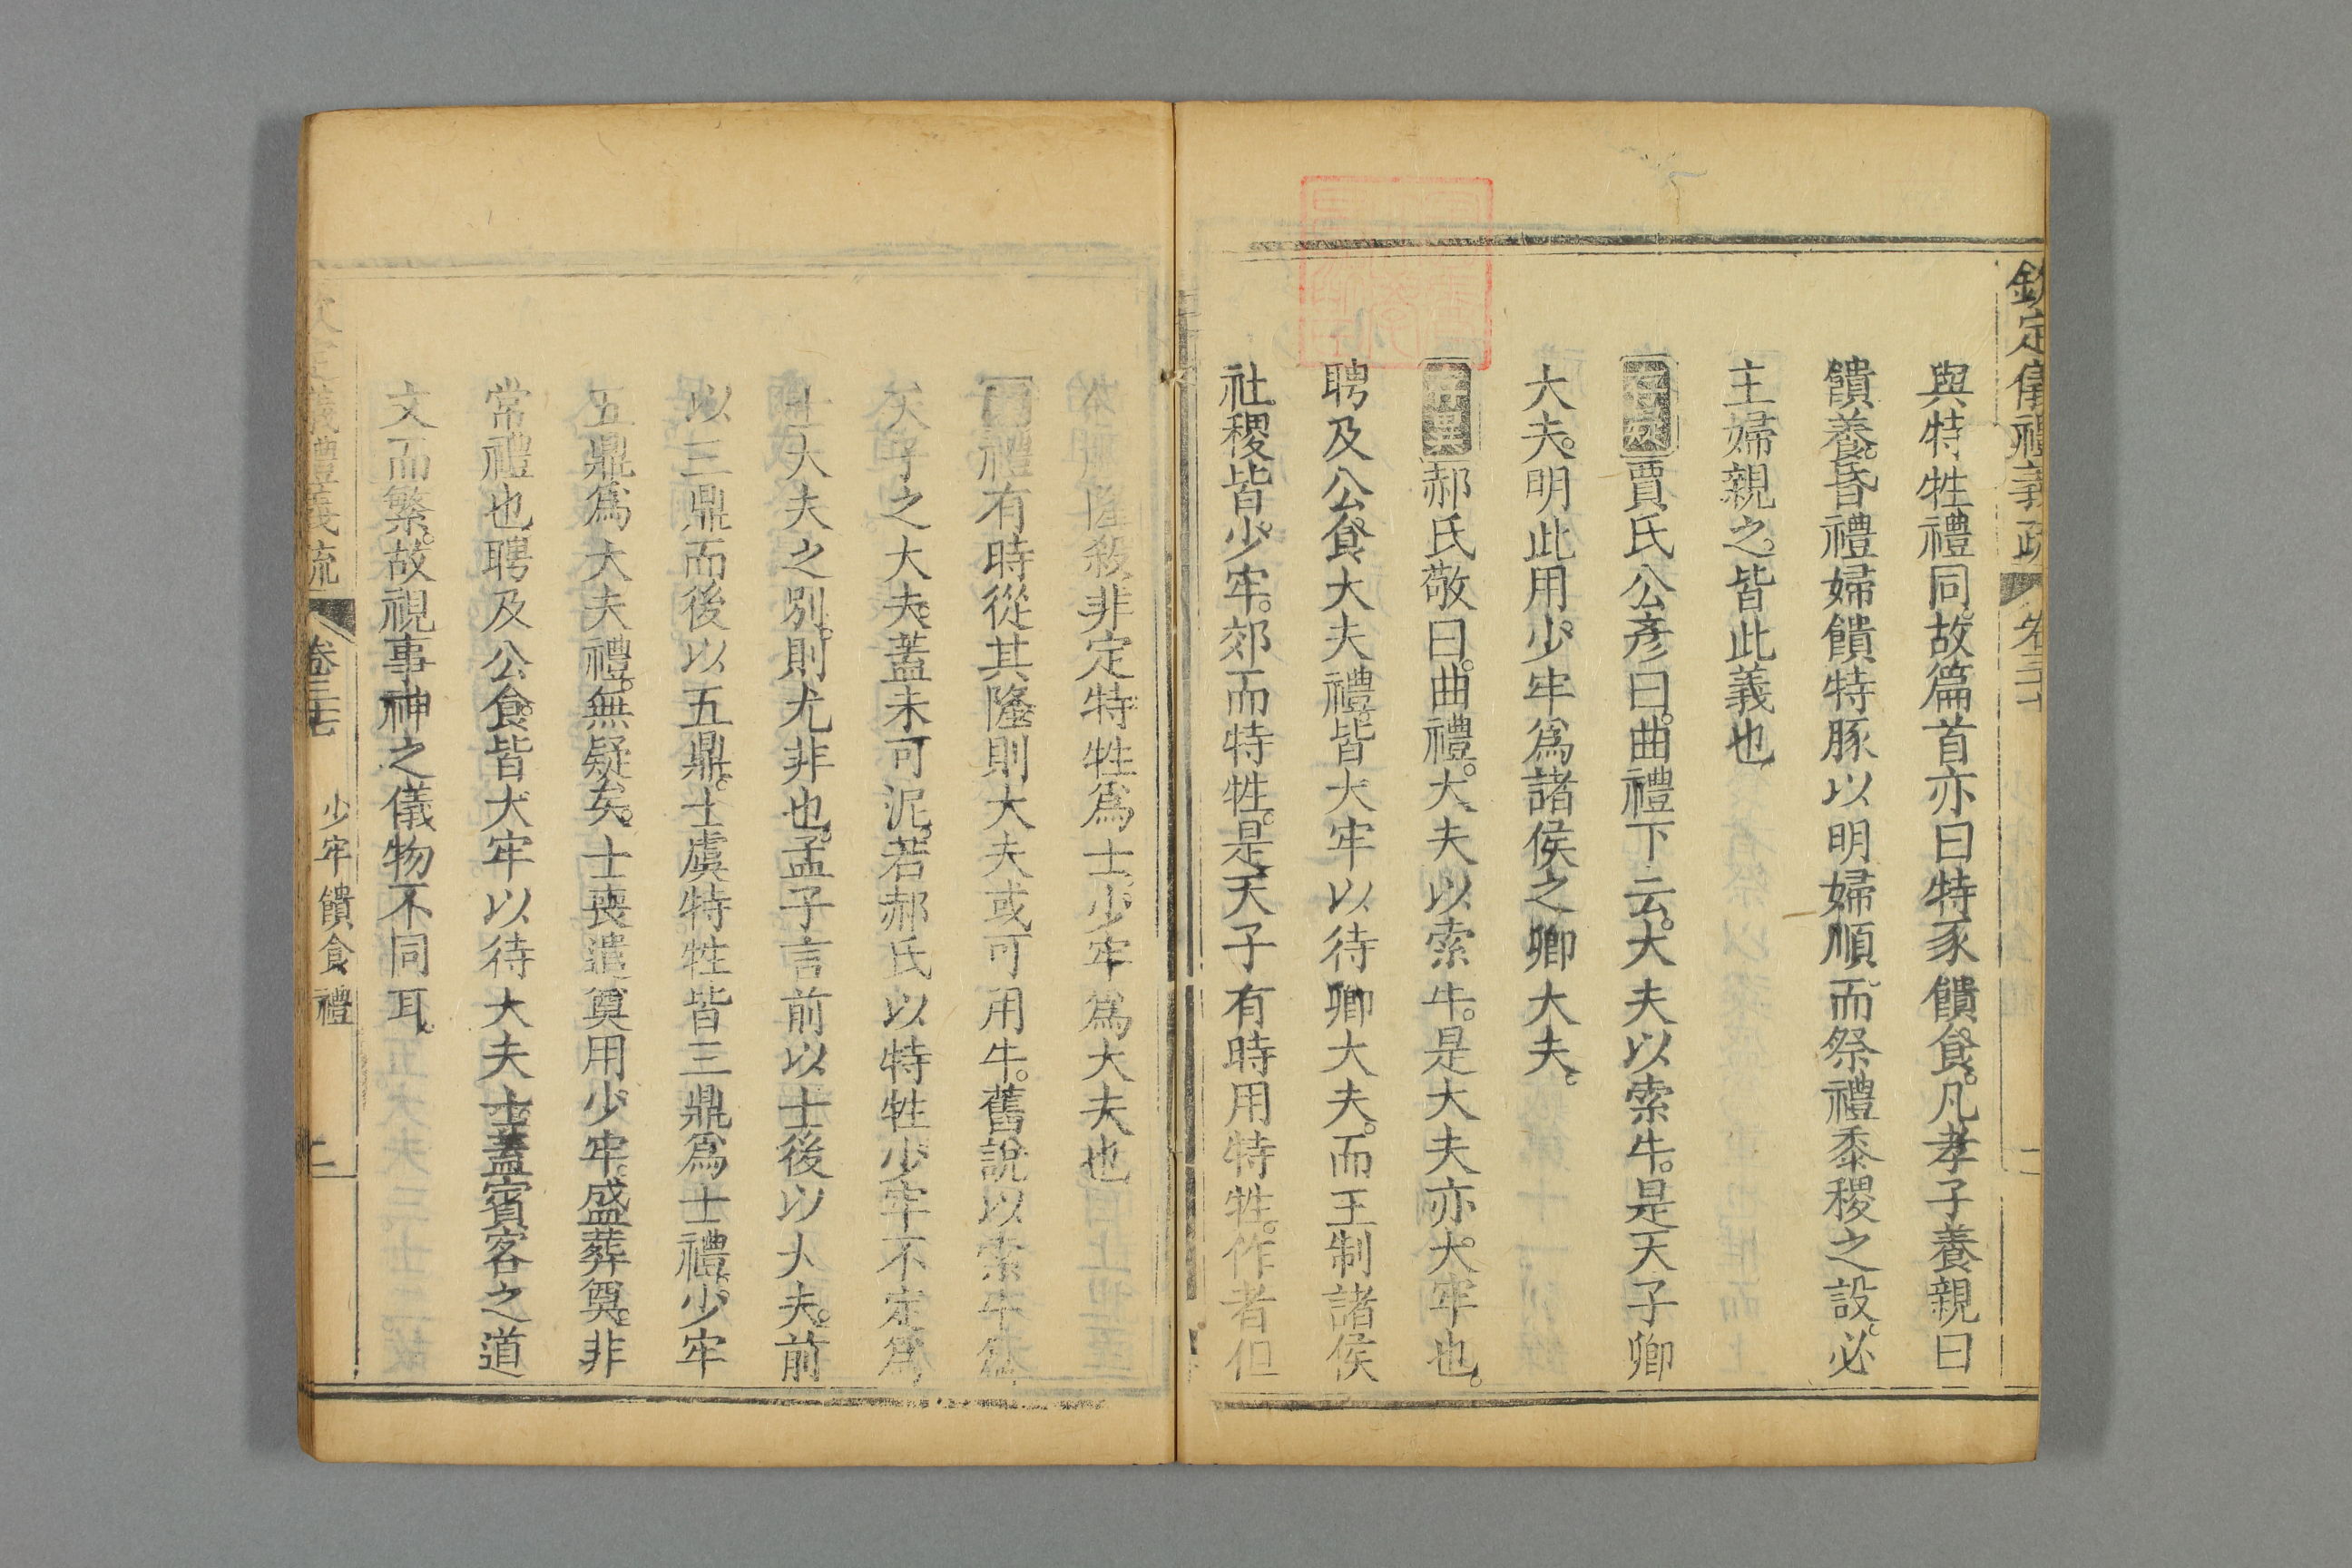 欽定儀禮義疏 卷三十
與特牲禮同。故篇首亦曰特豕饋食。凡孝子養親曰
饋養。昏禮婦饋特豚以明婦順。而祭禮黍稷之設。必
主婦親之。皆此義也
存疑賈氏公彥曰。曲禮下云。大夫以索牛。是天子卿
大夫。明此用少牢爲諸侯之卿大夫。
存異郝氏敬曰。曲禮。大夫以索牛。是大夫亦大牢也。
聘及公食大夫禮。皆大牢以待卿大夫。而王制諸侯
社稷皆少牢。郊而特牲。是天子有時用特牲。作者但
隆殺。非定特牲爲士少牢爲大夫也
禮有時從其隆。則大夫或可用牛。舊說以索牛爲
天子之大夫。蓋未可泥。若郝氏以特牲少牢不定爲
士大夫之別。則尤非也。孟子言前以士後以大夫。前
以三鼎而後以五鼎。士虞特牲皆三鼎爲士禮。少牢
五鼎爲大夫禮。無疑矣。士喪遣奠用少牢。盛葬奠。非
常禮也聘及公食。皆大牢以待大夫士。蓋賓客之道
文而繁。故視事神之儀物不同耳。
欽定儀禮義疏 卷三七 少牢饋食禮 二